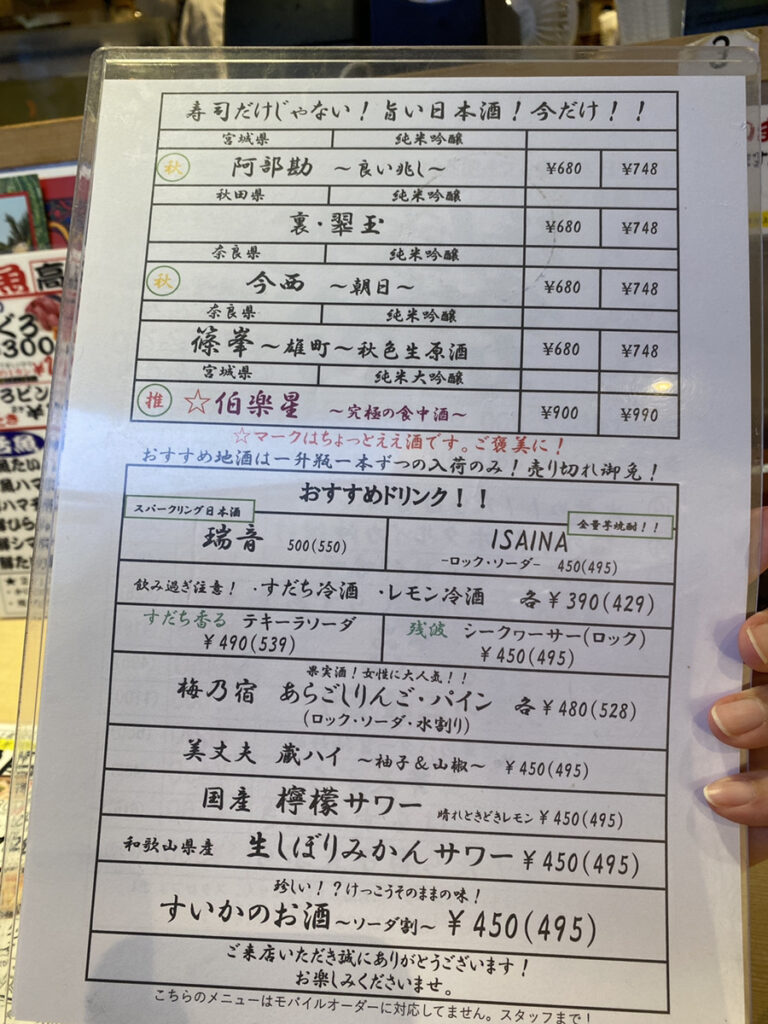 3
寿司だけじゃない！旨い日本酒！今だけ！！
宮城県 純米吟醸
秋 阿部勘 ～良い兆し～ ¥680 ¥748
秋田県 純米吟醸
裏・翠玉 ¥680 ¥748
奈良県 純米吟醸
秋 今西 ～朝日～ ¥680 ¥748
奈良県 純米吟醸
篠峯～雄町～秋色生原酒 ¥680 ¥748
宮城県 純米大吟醸
推 ☆伯楽星 ～究極の食中酒～ ¥900 ¥990
☆マークはちょっとええ酒です。ご褒美に！
おすすめ地酒は一升瓶一本ずつの入荷のみ！売り切れ御免！
おすすめドリンク！！
スパークリング日本酒
瑞音 500(550)
全量芋焼酎！！
ISAINA
-ロック・ソーダ- 450(495)
飲み過ぎ注意！ ・すだち冷酒 ・レモン冷酒 各¥390(429)
すだち香る テキーラソーダ
¥490(539)
残波 シークヮーサー(ロック)
¥450(495)
果実酒！女性に大人気！！
梅乃宿 あらごしりんご・パイン 各¥480(528)
(ロック・ソーダ・水割り)
美丈夫 蔵ハイ ～柚子＆山椒～ ¥450(495)
国産 檸檬サワー 晴れときどきレモン ¥450(495)
和歌山県産 生しぼりみかんサワー ¥450(495)
珍しい！？けっこうそのままの味！
すいかのお酒～ソーダ割～ ¥450(495)
ご来店いただき誠にありがとうございます！
お楽しみくださいませ。
こちらのメニューはモバイルオーダーに対応してません。スタッフまで！